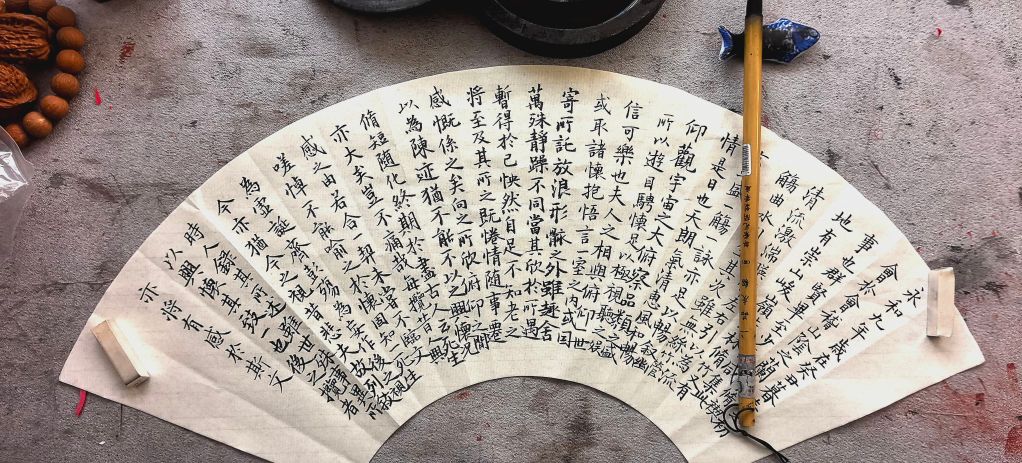 永和九年歲在癸丑暮
會於會稽山陰之
事也群賢畢至少
地有崇山峻嶺
清流激湍
觴曲水
盛一觴一詠亦足以暢叙幽
情是日也天朗氣清惠風和暢
仰觀宇宙之大俯察品類之盛
所以遊目騁懷足以極視聽之娛
信可樂也夫人之相與俯仰一世
或取諸懷抱悟言一室之內或因
寄所託放浪形骸之外雖趣舍
萬殊靜躁不同當其欣於所遇
暫得於己怏然自足不知老之
將至及其所之既惓情隨事遷
感慨係之矣向之所欣俯仰之間
以為陳迹猶不能不以之興懷況
脩短隨化終期於盡古人云死生
亦大矣豈不痛哉每攬昔人興
感之由若合一契未嘗不臨文
嗟悼不能喻之於懷固知一死生
為虛誕齊彭殤為妄作後之視
今亦猶今之視昔悲夫故列
時人錄其所述雖世殊事異所
以興懷其致一也後之攬者
亦將有感於斯文